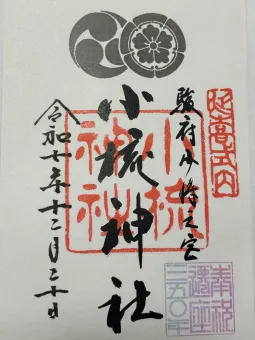 延喜式内
駿府少将之宮
奉祝
遷座
三五〇年
小梳神社
小梳
神社
令和七年十二月二十日